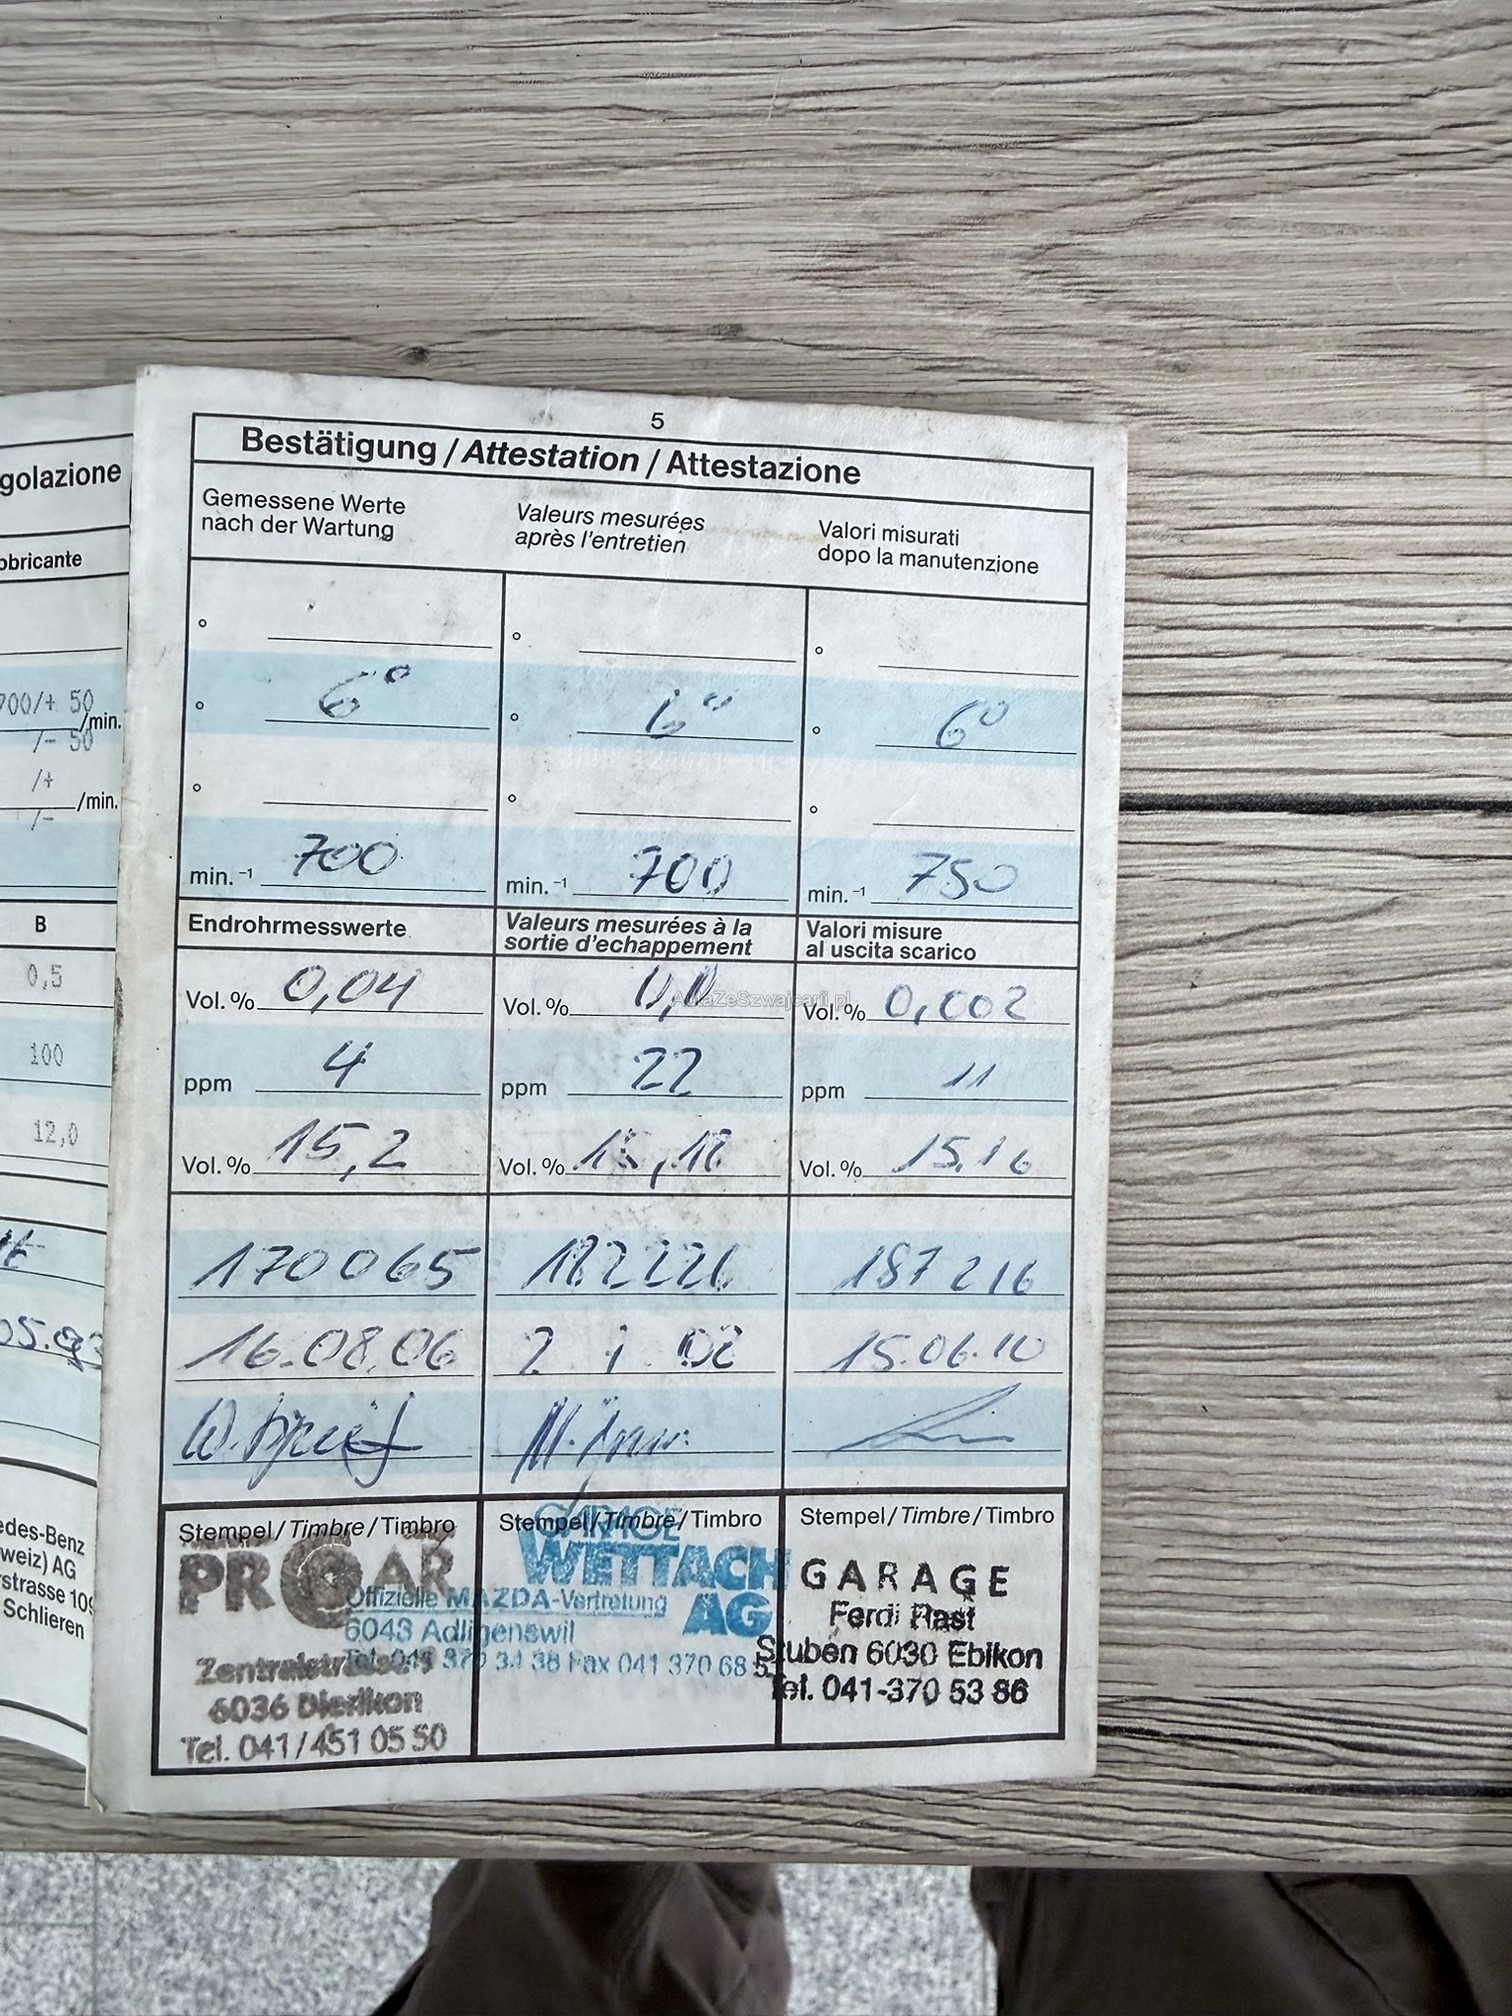 golazione
obricante
700/+ 50
/min.
/- 50
/+
/min.
/-
B
0,5
100
12,0
edes-Benz
weiz) AG
strasse 109
Schlieren
5
Bestätigung / Attestation / Attestazione
Gemessene Werte
nach der Wartung
Valeurs mesurées
après l'entretien
Valori misurati
dopo la manutenzione
° ° °
° 6° ° 6° ° 6°
° ° °
min.⁻¹ 700 min.⁻¹ 700 min.⁻¹ 750
Endrohrmesswerte
Valeurs mesurées à la
sortie d'echappement
Valori misure
al uscita scarico
Vol.% 0,04 Vol.% 0,0 Vol.% 0,002
AutaZeSzwajcarii.pl
ppm 4 ppm 22 ppm 11
Vol.% 15,2 Vol.% 15,18 Vol.% 15.16
170065 182226 187216
16.08.06 2 1 08 15.06.10
Stempel / Timbre / Timbro
PROCAR
Zentralstrasse
6036 Dierikon
Tel. 041/451 05 50
Stempel / Timbre / Timbro
GARAGE
WETTACH
AG
Offizielle MAZDA-Vertretung
6043 Adligenswil
Tel. 041 370 34 38 Fax 041 370 68
Stempel / Timbre / Timbro
GARAGE
Ferdi Rast
Stuben 6030 Ebikon
Tel. 041-370 53 86